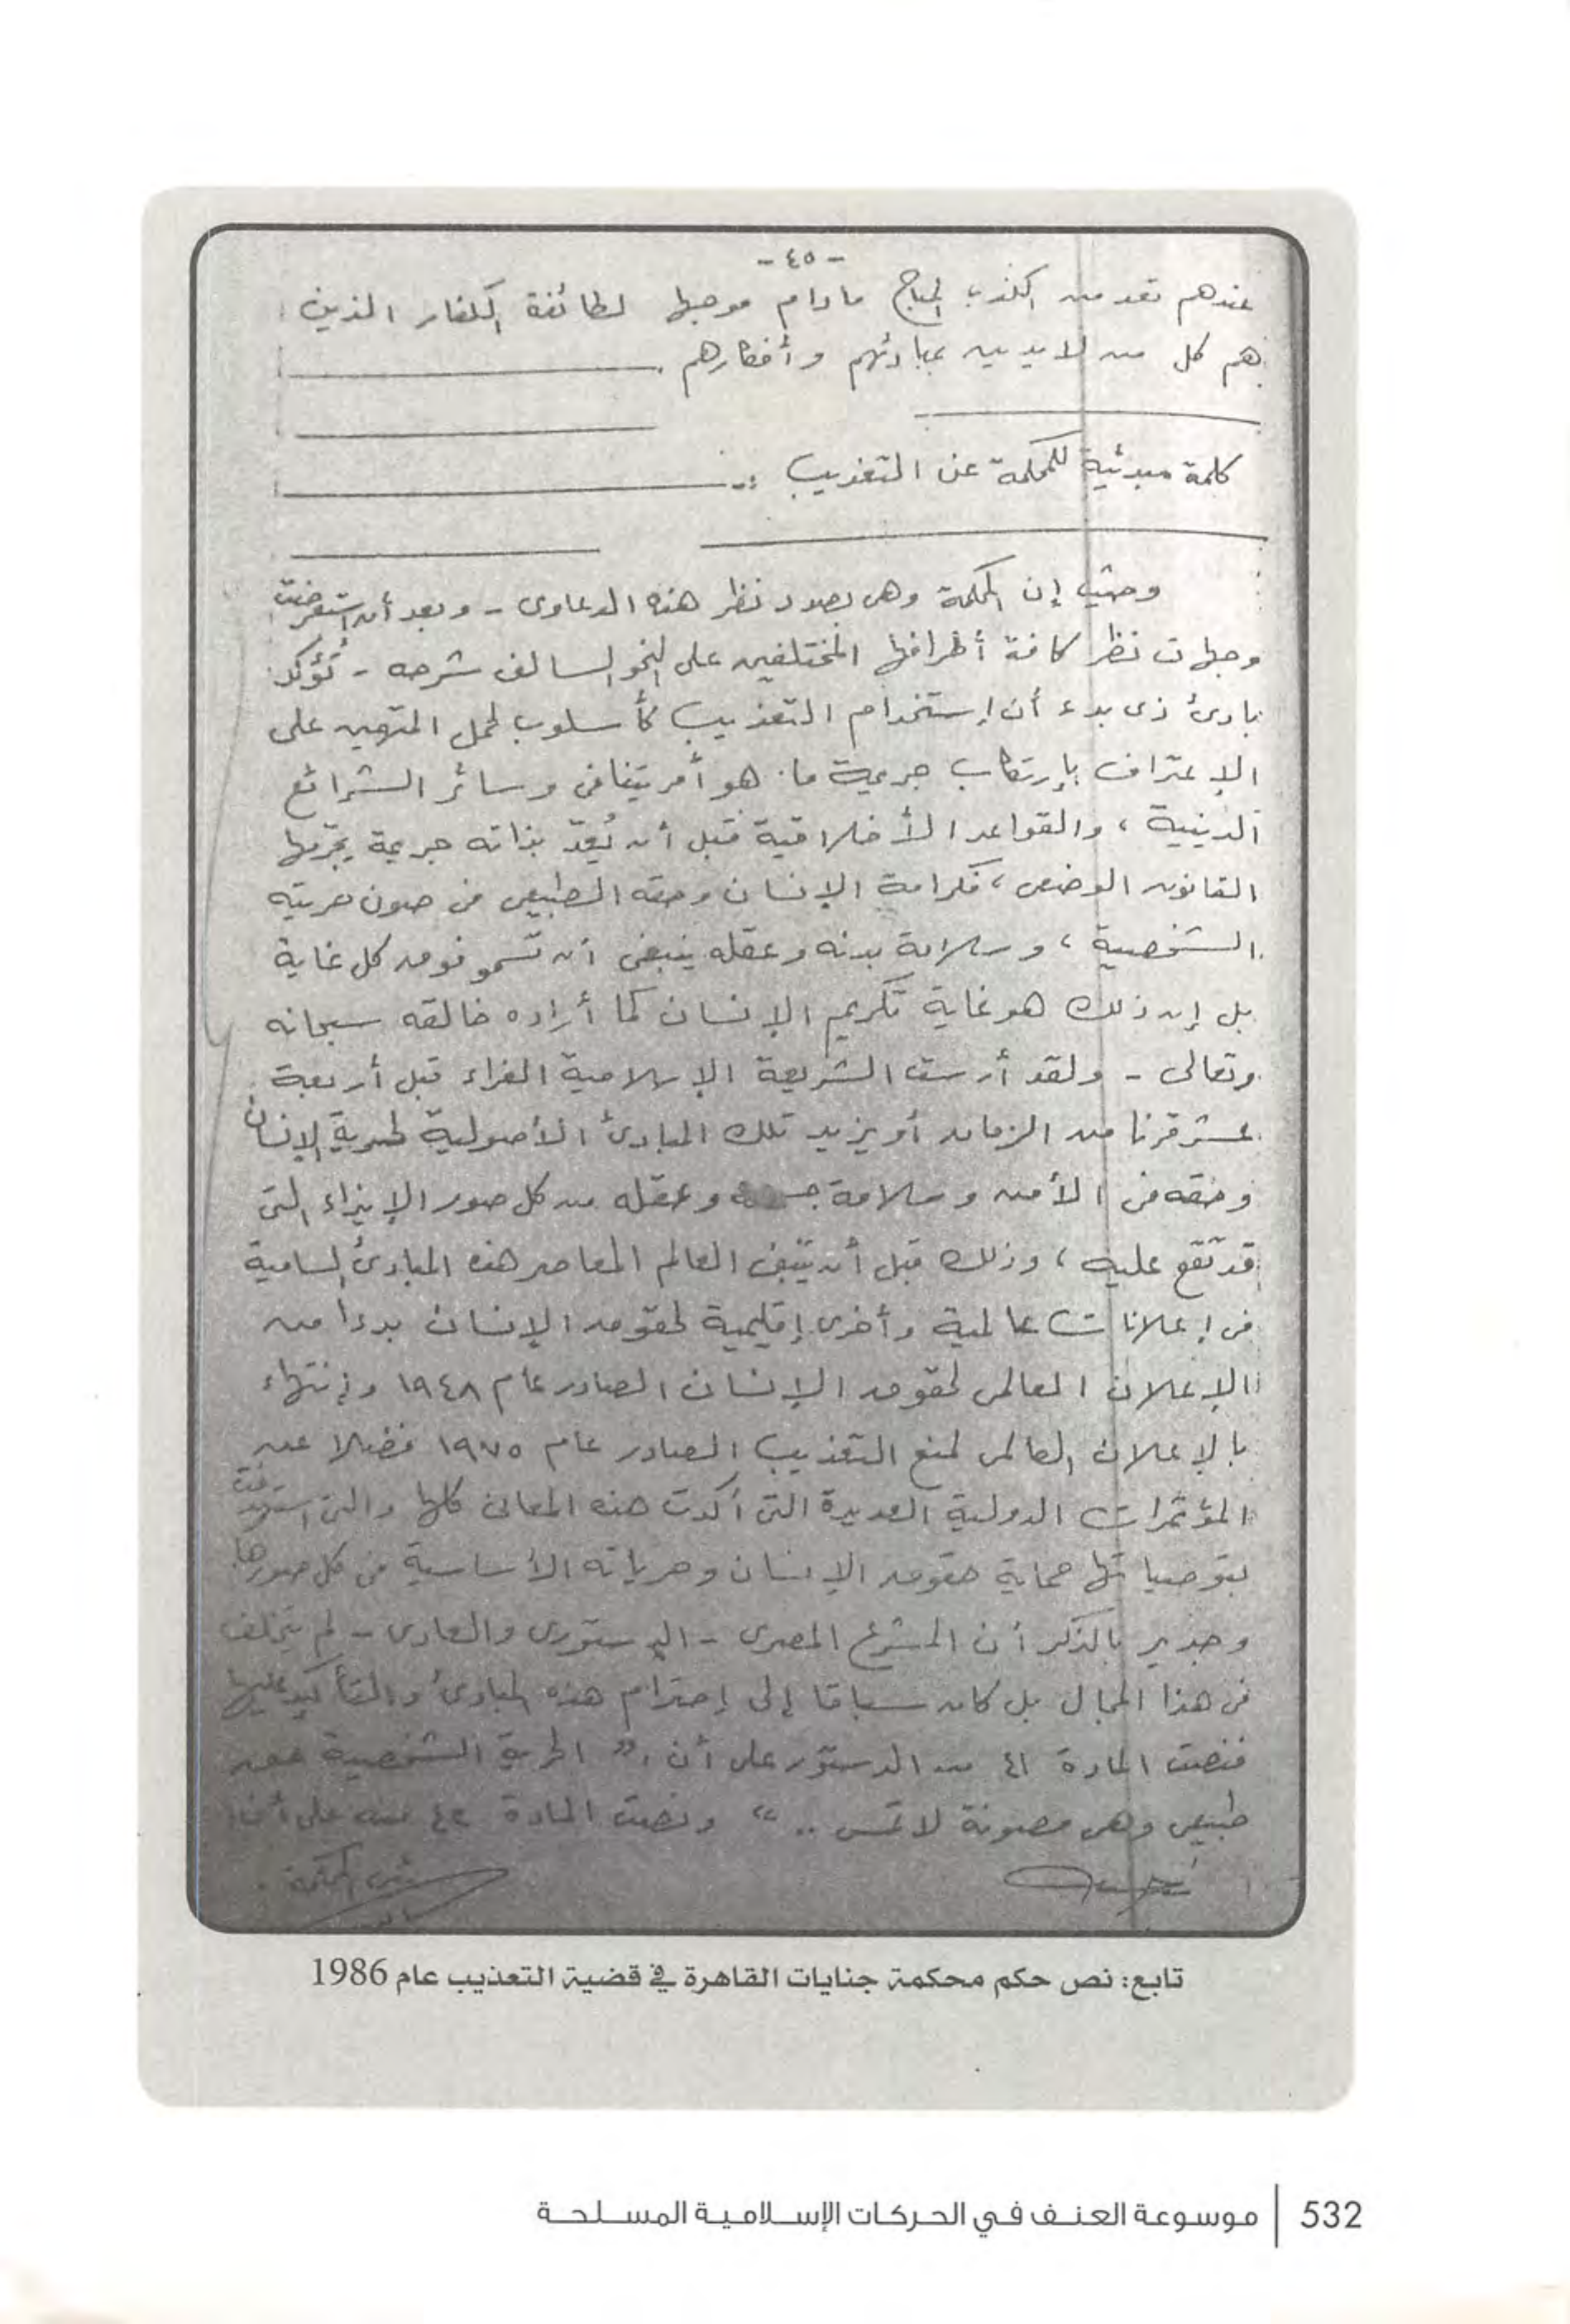 - ٤٥ -
عندهم تعد من الكذب المباح مادام موجها لطائفة الكفار الذين
هم كل من لا يدين بمبادئهم وأفكارهم .
كلمة مبدئية للمحكمة عن التعذيب :-
وحيث إن المحكمة وهى بصدد نظر هذه الدعاوى - وبعد أن استعرضت
وجهات نظر كافة أطرافها المختلفين على النحو السالف شرحه - تُؤكد
بادئ ذى بدء أن إستخدام التعذيب كأسلوب لحمل المتهمين على
الإعتراف بإرتكاب جريمة ما . هو أمر يتنافى وسائر الشرائع
الدينية ، والقواعد الأخلاقية قبل أن يُعدّ بذاته جريمة يجرّمها
القانون الوضعى ، فكرامة الإنسان وحقه الطبيعى فى صون حريته
الشخصية ، وسلامة بدنه وعقله ينبغى أن تسمو فوق كل غاية
بل إن ذلك هو غاية تكريم الإنسان كما أراده خالقه سبحانه
وتعالى - ولقد أرست الشريعة الإسلامية الغراء قبل أربعة
عشر قرنا من الزمان أو يزيد تلك المبادئ الأصولية لحرية الإنسان
وحقه فى الأمن وسلامة وعقله من كل صور الإيذاء التى
قد تقع عليه ، وذلك قبل أن العالم المعاصر هذه المبادئ السامية
فى إعلانات عالمية وأخرى إقليمية لحقوق الإنسان بدءا من
الإعلان العالمى لحقوق الإنسان الصادر عام ١٩٤٨ وإنتهاء
بالإعلان العالمى لمنع التعذيب الصادر عام ١٩٧٥ فضلا عن
المؤتمرات الدولية العديدة التى أكدت هذه المعانى كلها والتى استهدفت
بتوصياتها حماية حقوق الإنسان وحرياته الأساسية فى كل صورها .
وجدير بالذكر أن المشرع المصرى - الدستورى والعادى - لم يتخلف
فى هذا المجال بل كان سباقا إلى إحترام هذه المبادئ والتأكيد عليها
فنصت المادة ٤١ من الدستور على أن " الحرية الشخصية حق
طبيعى وهى مصونة لا تمس .. " ونصت المادة ٤٢ منه على أن
رئيس المحكمة .
تابع: نص حكم محكمة جنايات القاهرة في قضية التعذيب عام 1986
532 | موسوعة العنف في الحركات الإسلامية المسلحة